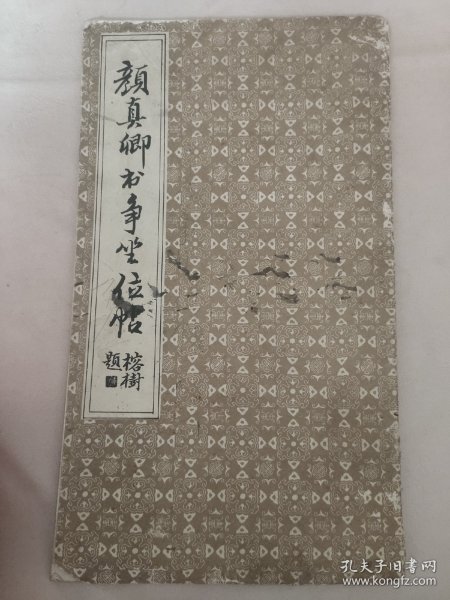 颜真卿书争坐位帖
榕樹
題
孔夫子旧书网
www.kongfz.com